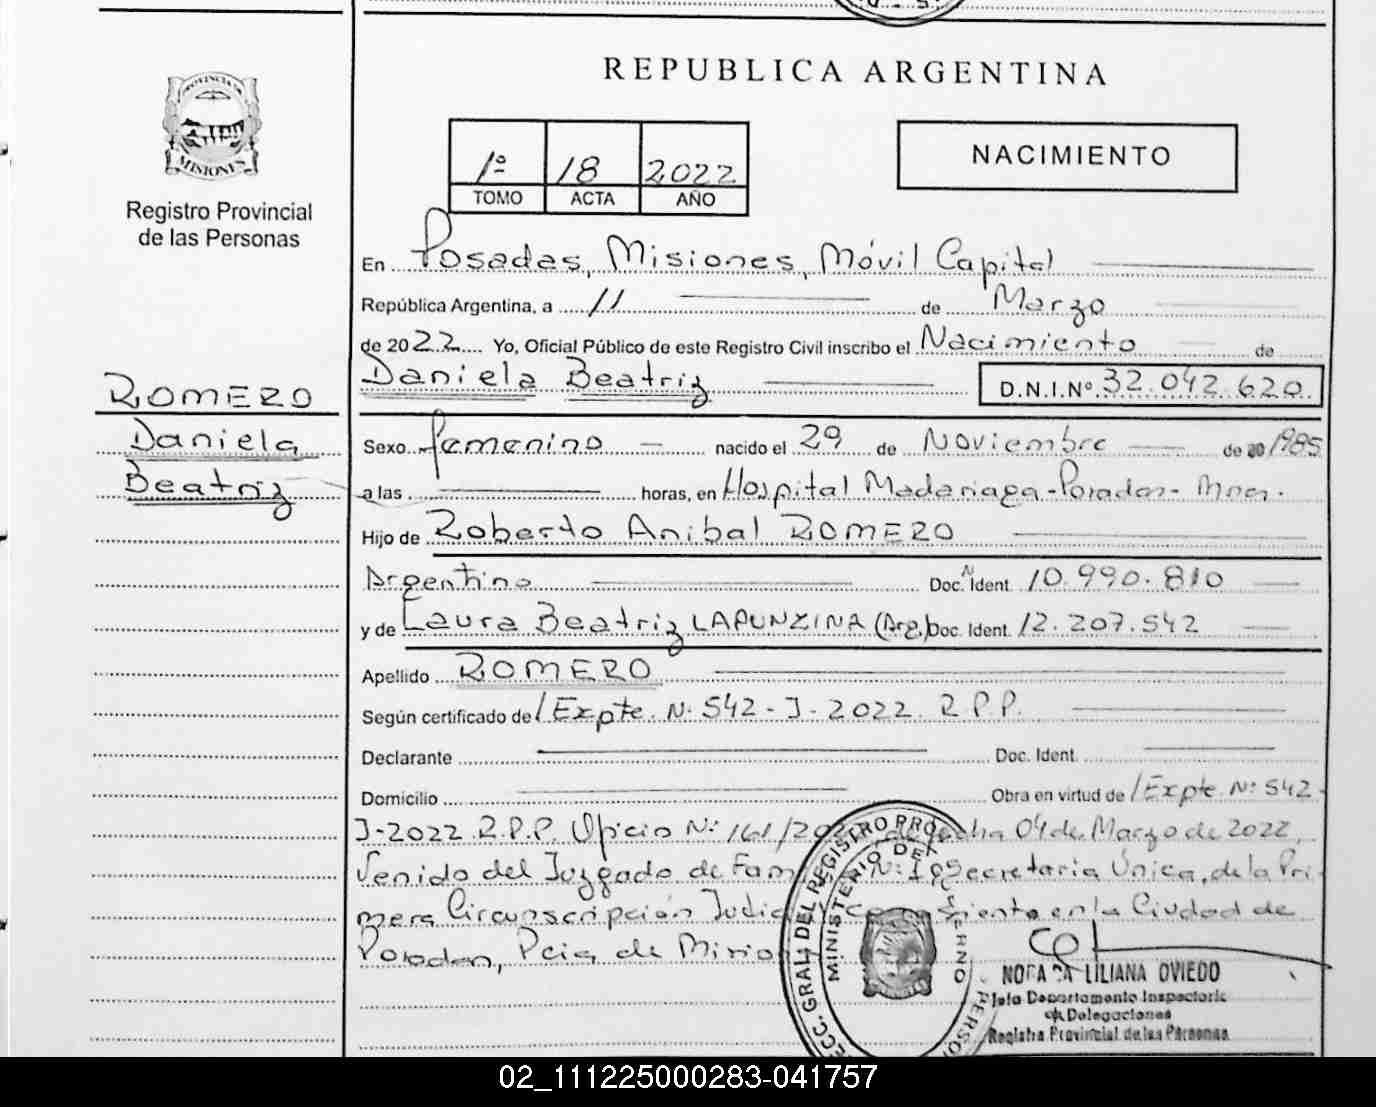 REPUBLICA ARGENTINA
PROVINCIA DE
MISIONES
Registro Provincial
de las Personas
1º 18 2022
TOMO ACTA AÑO
NACIMIENTO
En Posadas, Misiones, Móvil Capital
República Argentina, a 11 de Marzo
de 2022 Yo, Oficial Público de este Registro Civil inscribo el Nacimiento de
Daniela Beatriz D.N.I.Nº 32.042.620
ROMERO
Daniela
Beatriz
Sexo femenino nacido el 29 de Noviembre de 20 1985
a las horas, en Hospital Madariaga-Posadas-Mnes.
Hijo de Roberto Anibal ROMERO
Argentino Doc. Ident. 10.990.810
y de Laura Beatriz LAPUNZINA (Arg.) Doc. Ident. 12.207.542
Apellido ROMERO
Según certificado de /Expte. Nº 542-J-2022 R.P.P.
Declarante Doc. Ident.
Domicilio Obra en virtud de /Expte. Nº 542-
J-2022 R.P.P. Oficio Nº 161/ de fecha 04 de Marzo de 2022,
Venido del Juzgado de Nº 1 Secretaria Única, de la Pri-
mera Circunscripción en la Ciudad de
Posadas, Pcia de
GRAL. DEL REGISTRO
MINISTERIO DE
LILIANA OVIEDO
Jefa Departamento
Delegaciones
Registro Provincial de las Personas
02_111225000283-041757